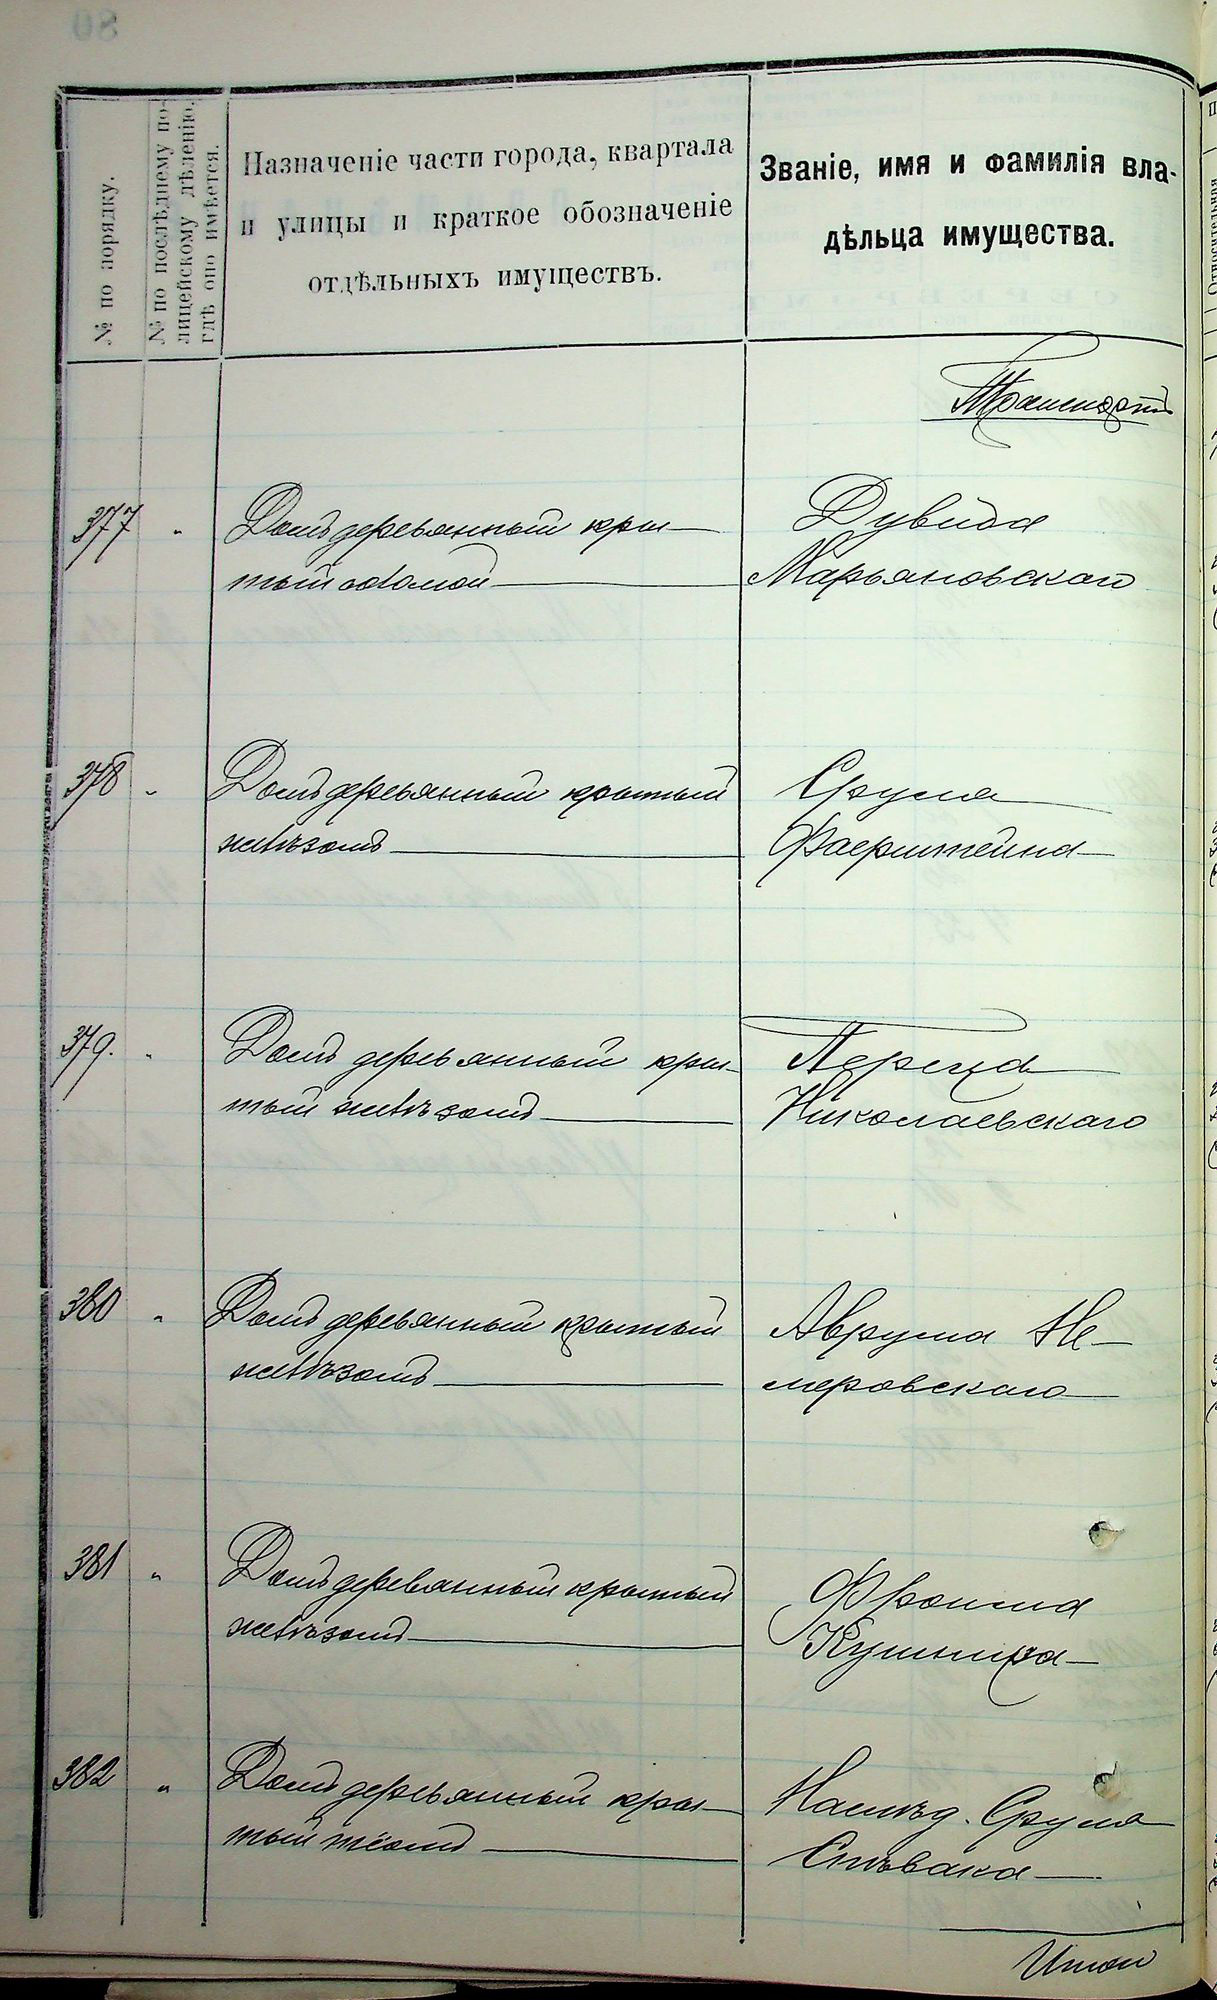 № по порядку.
№ по послѣднему по-
лицейскому дѣленію,
гдѣ оно имѣется.
Назначеніе части города, квартала
и улицы и краткое обозначеніе
отдѣльныхъ имуществъ.
Званіе, имя и фамилія вла-
дѣльца имущества.
Транспортъ
377 „ Домъ деревянный кры-
тый соломой
Дувида
Марьяновскаго
378 „ Домъ деревянный крытый
желѣзомъ
Сруля
Фаерштейна
379. „ Домъ деревянный кры-
тый желѣзомъ
Перца
Николаевскаго
380 „ Домъ деревянный крытый
желѣзомъ
Аврума Не-
меровскаго
381 „ Домъ деревянный крытый
желѣзомъ
Фроима
Кушнира
382 „ Домъ деревянный кры-
тый тёсомъ
Наслѣд. Сруля
Спѣвака
Итого